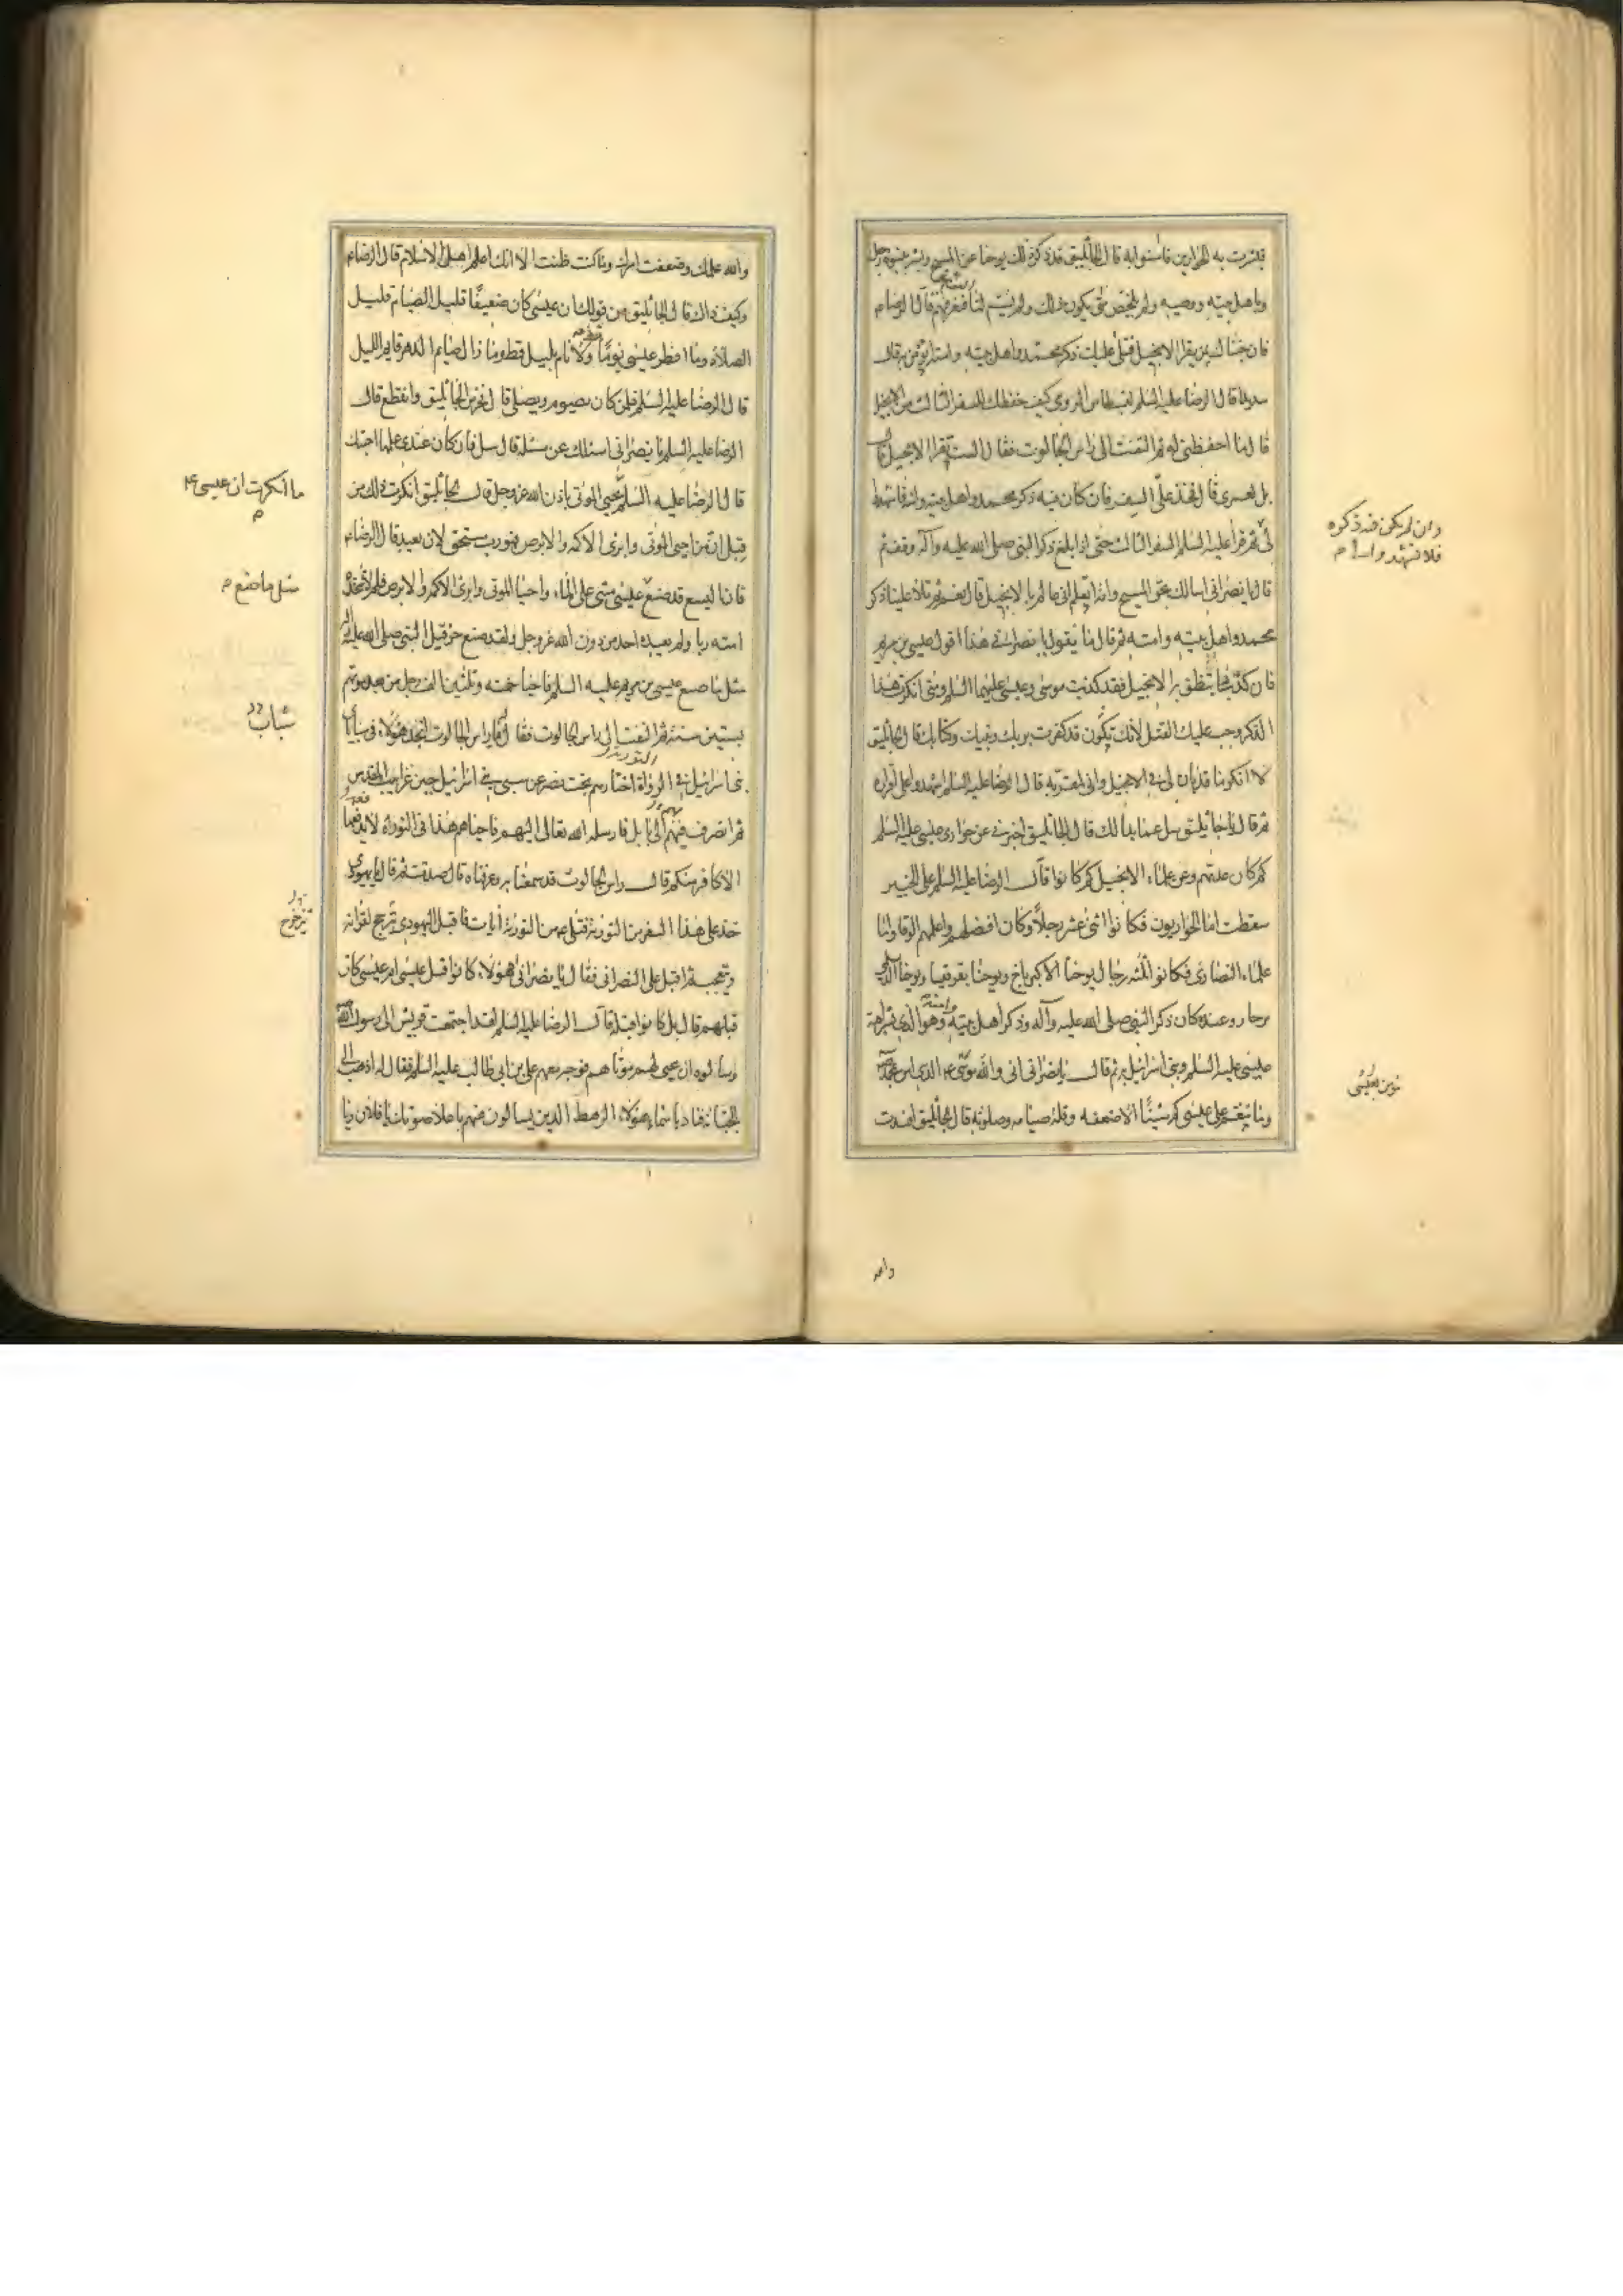 فبشرت به الحواريين فامنوا به قال الجاثليق قد ذكر ذلك يوحنا عن المسيح وبشر بنبوة رجل
وباهل بيته ووصيه ولم يلخص متى يكون ذلك ولم يسم لنا القوم فنعرفهم قال الرضا ع
فان جئناك بمن يقرا الانجيل فتلى عليك ذكر محمد واهل بيته وامته اتؤمن به قال
سديدا قال الرضا عليه السلم لنسطاس الرومي كيف حفظك للسفر الثالث من الانجيل
قال ما احفظني له ثم التفت الى راس الجالوت فقال الست تقرا الانجيل قال
بلى لعمري قال فخذ على السفر فان كان فيه ذكر محمد واهل بيته وامته فاشهدوا
لي ثم قرا عليه السلم السفر الثالث حتى اذا بلغ ذكر النبي صلى الله عليه وآله وقف ثم
قال يا نصراني اسالك بحق المسيح وامه اتعلم اني عالم بالانجيل قال نعم ثم تلا علينا ذكر
محمد واهل بيته وامته ثم قال ما تقول يا نصراني هذا قول عيسى بن مريم
فان كذبت بما ينطق به الانجيل فقد كذبت موسى وعيسى عليهما السلم ومتى انكرت هذا
الذكر وجب عليك القتل لانك تكون قد كفرت بربك ونبيك وكتابك قال الجاثليق
لا انكر ما قد بان لي في الانجيل واني لمقر به قال الرضا عليه السلم اشهدوا على اقراره
ثم قال يا جاثليق سل عما بدا لك قال الجاثليق اخبرني عن حواري عيسى عليه السلم
كم كان عدتهم وعن علماء الانجيل كم كانوا قال الرضا عليه السلم على الخبير
سقطت اما الحواريون فكانوا اثنى عشر رجلا وكان افضلهم واعلمهم الوقا واما
علماء النصارى فكانوا ثلثة رجال يوحنا الاكبر باخ ويوحنا بقرقيسا ويوحنا الديلمي
برجار وعنده كان ذكر النبي صلى الله عليه وآله وذكر اهل بيته وامته وهو الذي بشر امة
عيسى عليه السلم وبني اسرائيل به ثم قال يا نصراني اني والله نؤمن
وما ننقم على عيسى كم شيئا الا ضعفه وقلة صيامه وصلوته قال الجاثليق افسدت
وان لم يكن فيه ذكره
فلا تشهدوا لي م
نؤمن بعيسى
والله علمك وضعفت امرك وما كنت ظننت الا انك اعلم اهل الاسلام قال الرضا ع
وكيف ذاك قال الجاثليق من قولك ان عيسى كان ضعيفا قليل الصيام قليل
الصلاة وما افطر عيسى يوما ولا نام بليل قط وما زال صائم الدهر قايم الليل
قال الرضا عليه السلم فلمن كان يصوم ويصلي قال فخرس الجاثليق وانقطع قال
الرضا عليه السلم يا نصراني اسئلك عن مسئلة قال سل فان كان عندي علمها اجبتك
قال الرضا عليه السلم يحيي الموتى باذن الله عز وجل قال الجاثليق انكرت ذلك من
قبل ان من احيى الموتى وابرئ الاكمه والابرص فهو رب مستحق لان يعبد قال الرضا ع
فان اليسع قد صنع عيسى مشى على الماء واحيا الموتى وابرئ الاكمه والابرص فلم تتخذه
امته ربا ولم يعبده احد من دون الله عز وجل ولقد صنع حزقيل النبي صلى الله عليه
مثل ما صنع عيسى بن مريم عليه السلم فاحيا خمسة وثلثين الف رجل من بعد موتهم
بستين سنة ثم التفت الى راس الجالوت فقال له يا راس الجالوت اتجد هؤلاء في
بني اسرائيل في التورية اختارهم بخت نصر عن سبي بني اسرائيل حين غزا بيت المقدس
ثم انصرف بهم الى بابل فارسله الله تعالى اليهم فاحياهم هذا في التوراة لا يدفعه
الا كافر منكم قال راس الجالوت قد سمعنا به وعرفناه قال صدقت ثم قال يا يهودي
خذ على هذا السفر من التورية فتلى ع من التورية آيات فاقبل اليهودي يترجج لقرائته
ويتعجب ثم اقبل على النصراني فقال يا نصراني هؤلاء كانوا قبل عيسى ام عيسى كان
قبلهم قال بل كانوا قبله قال الرضا عليه السلم لقد اجتمعت قريش الى رسول الله
وسالوه ان يحيي لهم موتاهم فوجه معهم علي بن ابي طالب عليه السلم فقال له اذهب الى
الجبانة فناد باسماء هؤلاء الرهط الذين يسالون عنهم باعلا صوتك يا فلان ويا
ما انكرت ان عيسى ع
م
مثل ما صنع م
شباب
والله